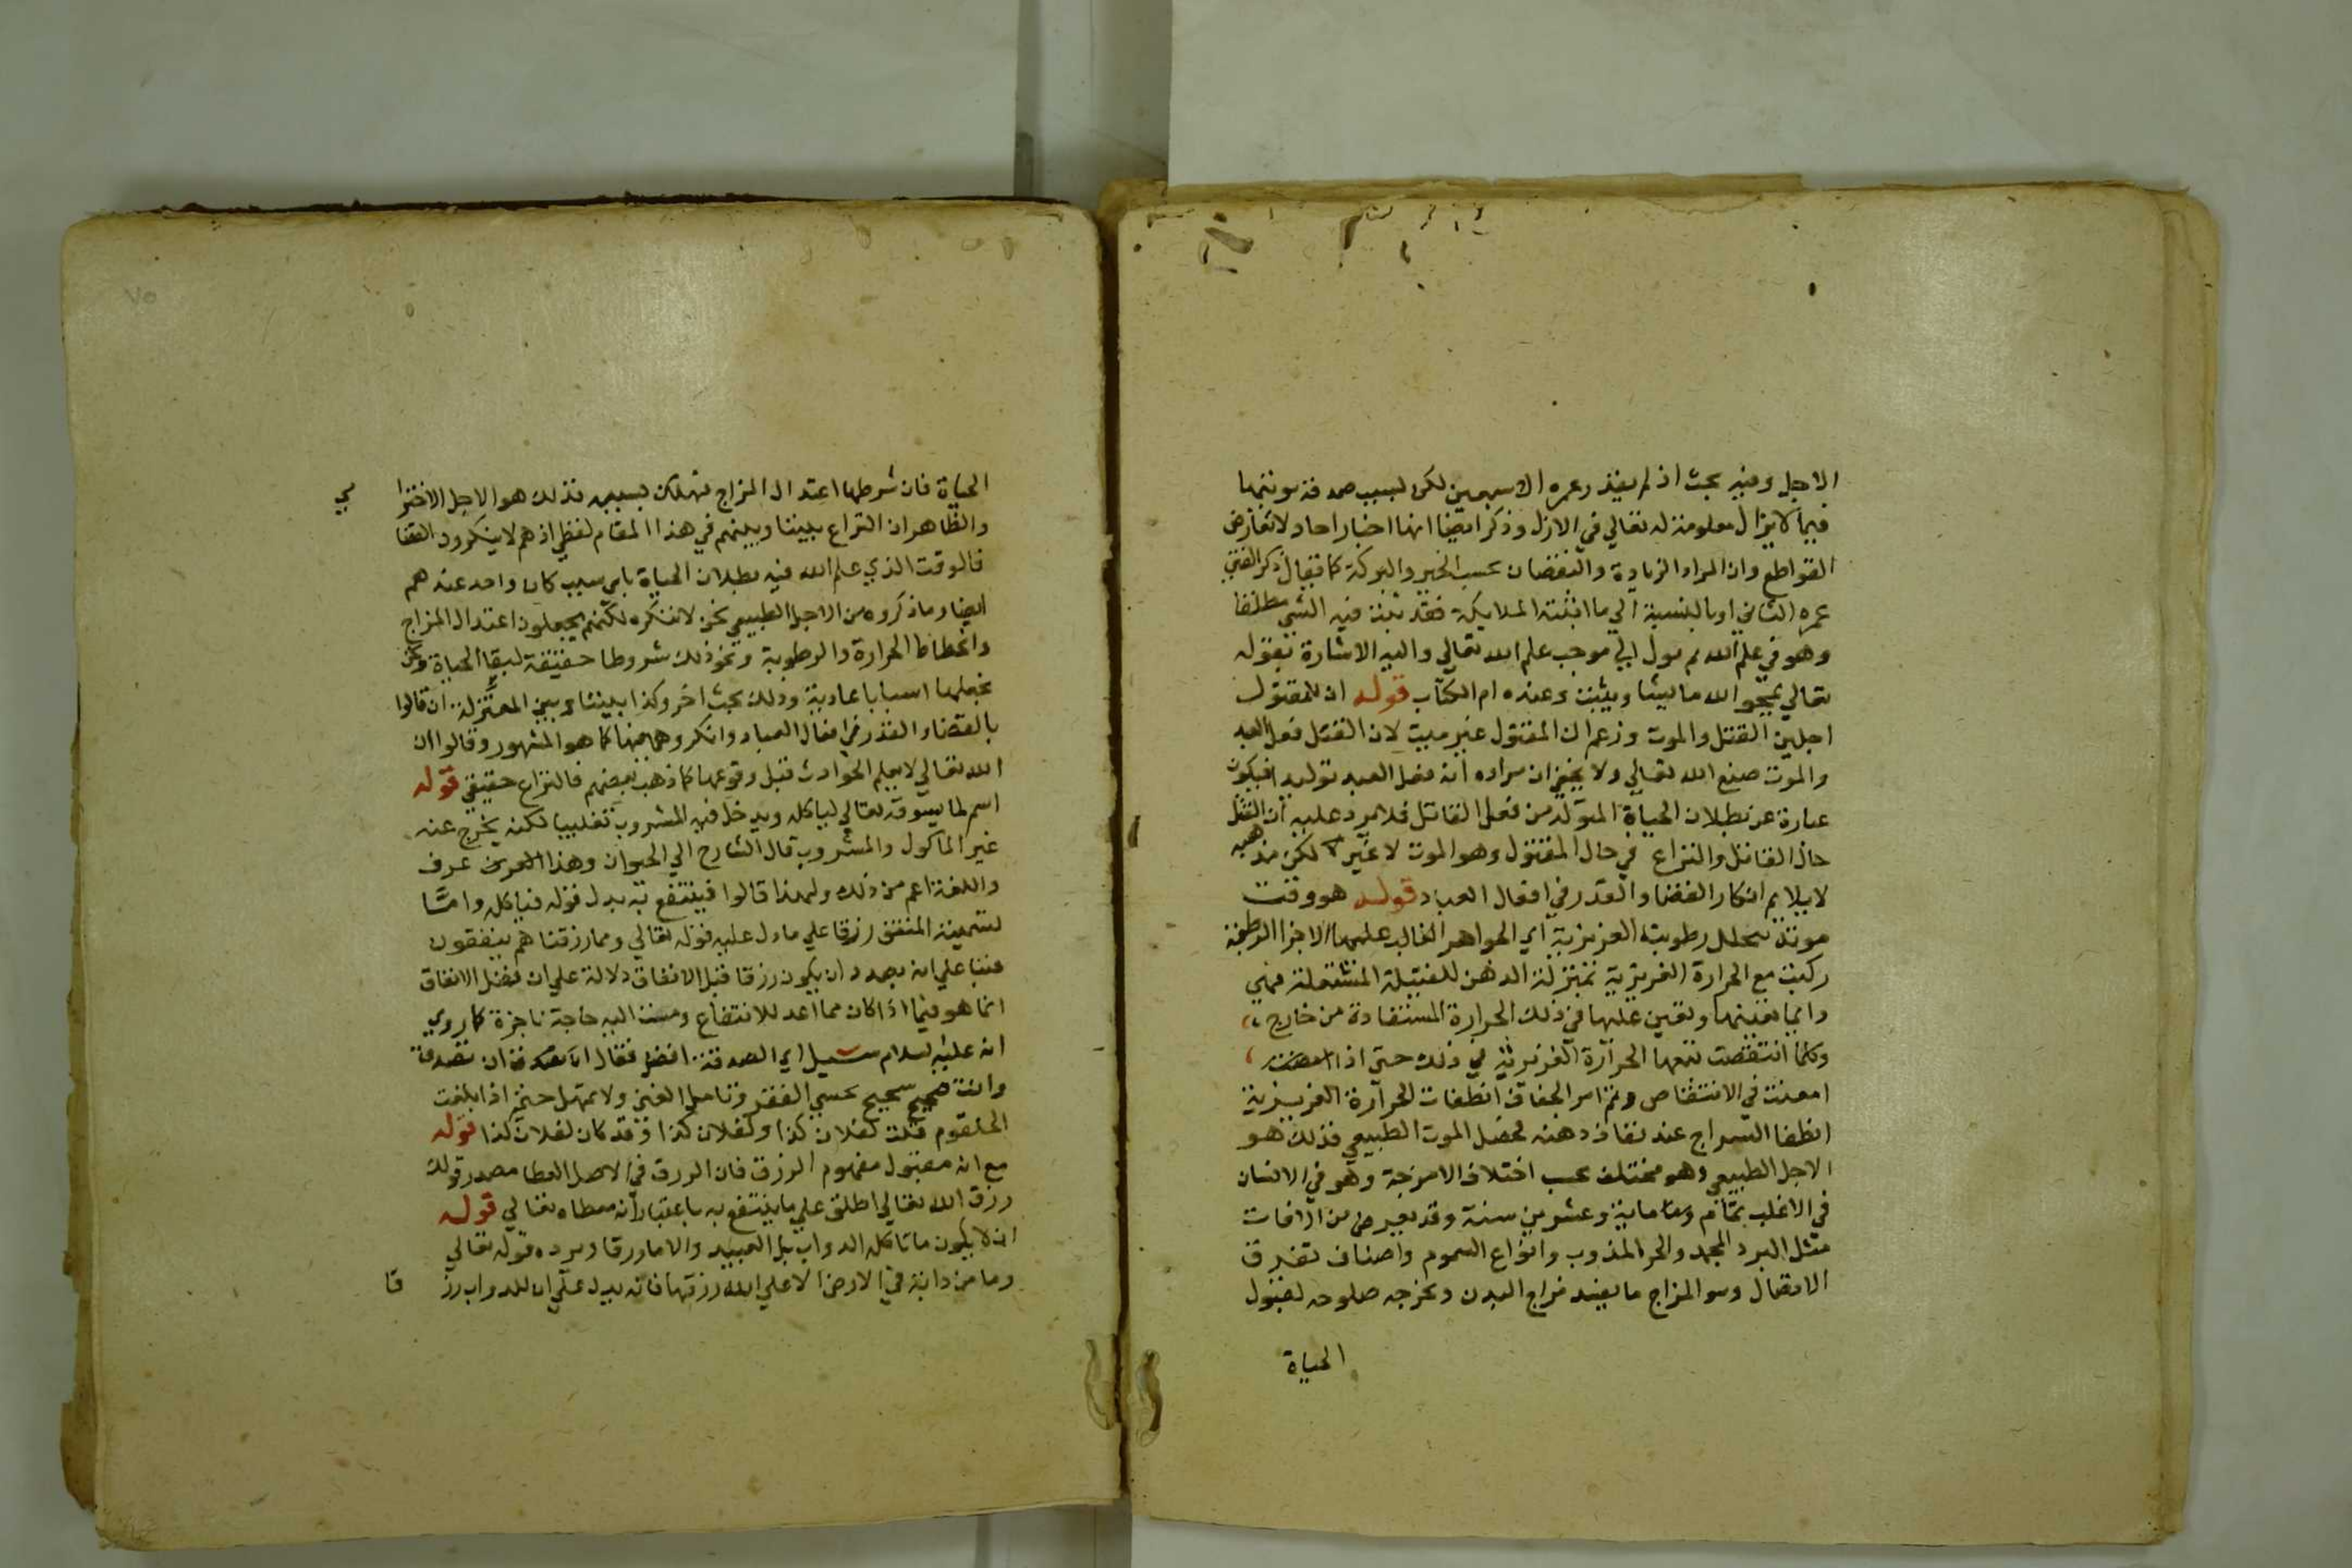 الاجل وفيه بحث اذ لم يقدر عمره الا سبعين لكن بسبب صدقة
فيما لا يزال معلومة له تعالي في الازل وذكر ايضا انها اخبار احاد لا تعارض
القواطع وان المراد الزيادة والنقصان بحسب الخير والبركة كما يقال ذكر الفتي
عمره الثاني او بالنسبة الي ما اثبته الملايكة فقد يثبت فيه الشي مطلقا
وهو في علم الله ثم يول الي موجب علم الله تعالي واليه الاشارة بقوله
تعالي يمحو الله ما يشا ويثبت وعنده ام الكتاب قوله ان للمقتول
اجلين القتل والموت وزعم ان المقتول غير ميت لان القتل فعل العبد
والموت صنع الله تعالي ولا يخفي ان مراده ان فعل العبد توليدا فيكون
عبارة عن بطلان الحياة المتولد من فعل القاتل فلا يرد عليه ان القتل
حال القاتل والنزاع في حال المقتول وهو الموت لا غير لكن مذهبه
لا يلايم انكار القضا والقدر في افعال العباد قوله هو وقت
موته بتحلل رطوبته الغريزية اي الجواهر الغالب عليها الاجزا الرطبة
ركبت مع الحرارة الغريزية بمنزلة الدهن للفتيلة المشتعلة فهي
دايما تفنيها وتعين عليها في ذلك الحرارة المستفادة من خارج
وكلما انتقصت تبعها الحرارة الغريزية في ذلك حتي اذا
امعنت في الانتقاص وتم امر الجفاف انطفات الحرارة الغريزية
انطفا السراج عند نفاذ دهنه فحصل الموت الطبيعي فذلك هو
الاجل الطبيعي وهو مختلف بحسب اختلاف الامزجة وهو في الانسان
في الاغلب تمام ماية وعشرين سنة وقد يعرض من الافات
مثل البرد المجمد والحر المذوب وانواع السموم واصناف تفرق
الاتصال وسو المزاج ما يفسد مزاج البدن ويخرجه صلوحه لقبول
الحياة
الحياة فان شرطها اعتدال المزاج فيهلك بسببه فذلك هو الاجل الاخترا مي
والظاهر ان النزاع بيننا وبينهم في هذا المقام لفظي اذ هم لا ينكرون القضا
فالوقت الذي علم الله فيه بطلان الحياة باي سبب كان واحد عندهم
ايضا وما ذكروه من الاجل الطبيعي نحن لا ننكره لكنهم يجعلون اعتدال المزاج
وانحطاط الحرارة والرطوبة ونحو ذلك شروطا حقيقة لبقا الحياة ونحن
نجعلها اسبابا عادية وذلك بحث اخر وكذا بيننا وبين المعتزلة ان قالوا
بالقضا والقدر في افعال العباد وانكروهما فيها كما هو المشهور وقالوا ان
الله تعالي لا يعلم الحوادث قبل وقوعها كما ذهب بعضهم فالنزاع حقيقي قوله
اسم لما يسوقه تعالي لياكله ويدخل فيه المشروب تغليبا لكنه يخرج عنه
غير الماكول والمشروب قال الشارح الي الحيوان وهذا عرف
واللغة اعم من ذلك ولهذا قالوا فينتفع به بدل قوله فياكله واما
تسمية المنفق رزقا علي ما دل عليه قوله تعالي ومما رزقناهم ينفقون
فبنا علي انه بصدد ان يكون رزقا قبل الانفاق دلالة علي ان فضل الانفاق
انما هو فيما اذا كان مما اعد للانتفاع ومست اليه حاجة ناجزة كما روي
انه عليه السلام سييل اي الصدقة افضل فقال ان تصدق
وانت صحيح شحيح تخشي الفقر وتامل الغني ولا تمهل حتي اذا بلغت
الحلقوم قلت لفلان كذا ولفلان كذا وقد كان لفلان كذا قوله
مع انه معتبر في مفهوم الرزق فان الرزق في الاصل العطا مصدر قولك
رزق الله تعالي اطلق علي ما ينتفع به باعتبار انه معطاه تعالي قوله
ان لا يكون ما تاكله الدواب بل العبيد والاما رزقا ويرده قوله تعالي
وما من دابة في الارض الا علي الله رزقها فانه يدل علي ان للدواب رز قا